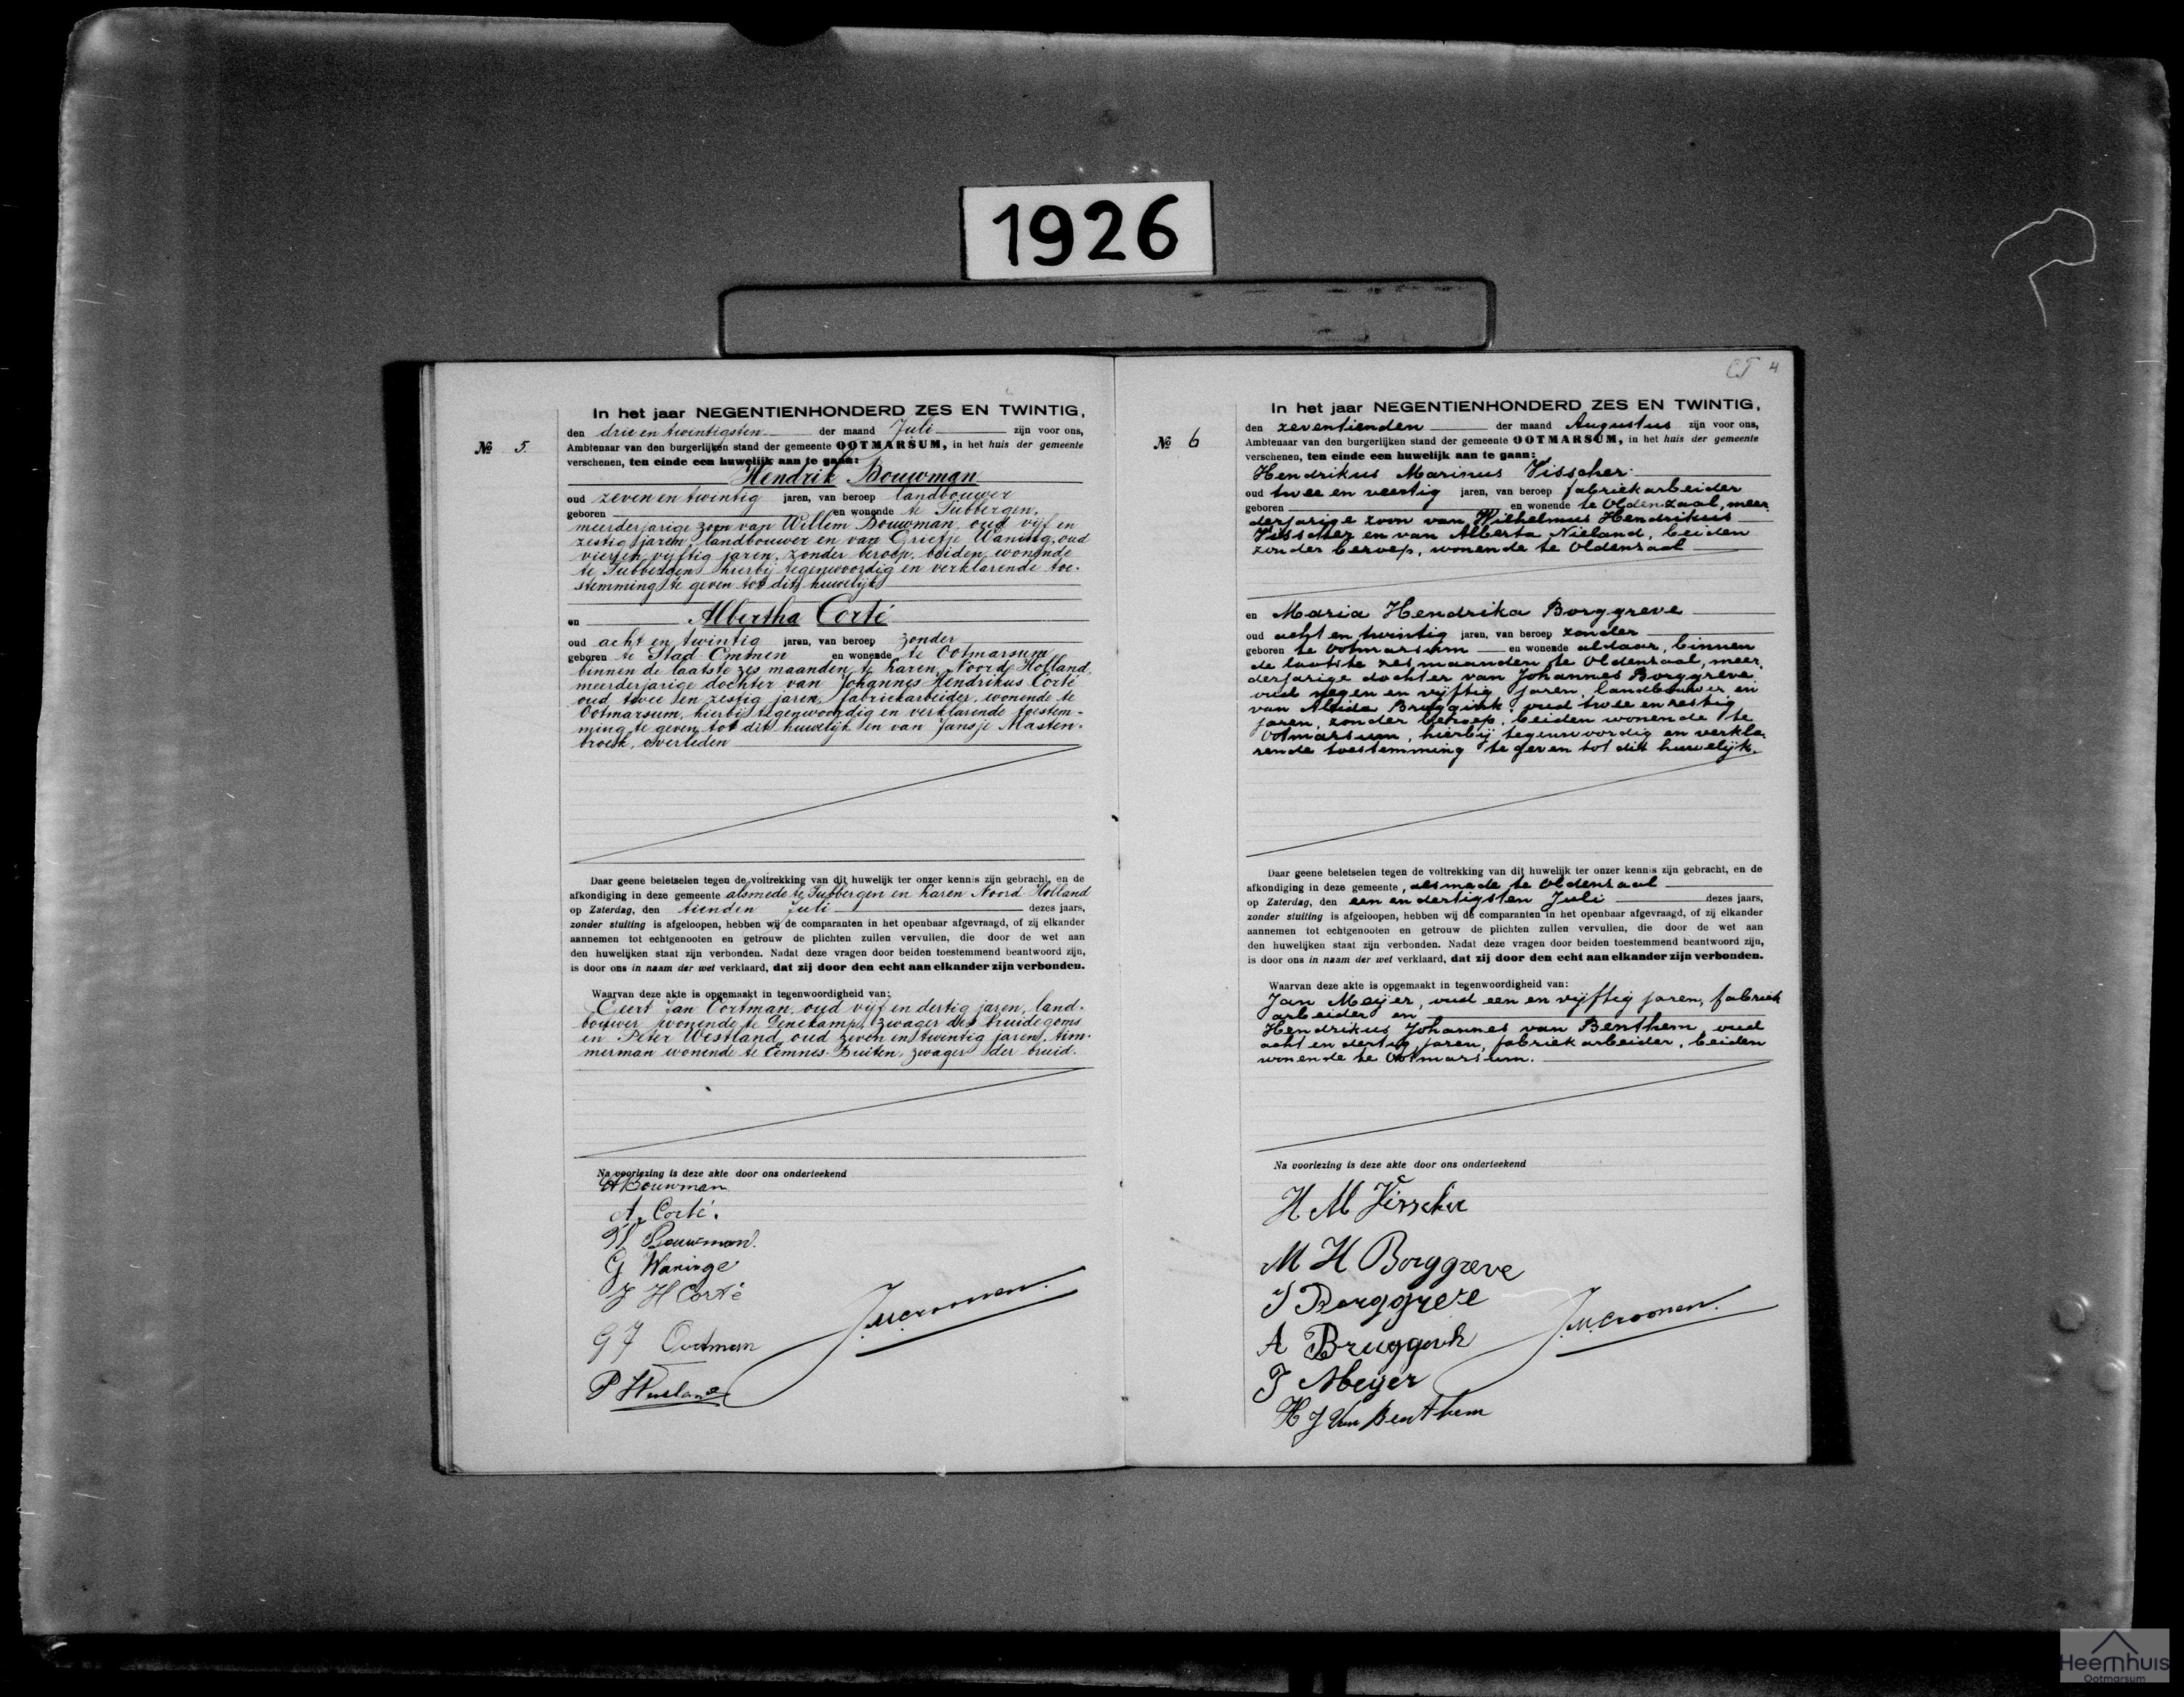 1926
In het jaar NEGENTIENHONDERD ZES EN TWINTIG,
den drie en twintigsten der maand Juli zijn voor ons,
№ 5. Ambtenaar van den burgerlijken stand der gemeente OOTMARSUM, in het huis der gemeente
verschenen, ten einde een huwelijk aan te gaan:
Hendrik Bouwman
oud zeven en twintig jaren, van beroep landbouwer
geboren en wonende te Tubbergen,
meerderjarige zoon van Willem Bouwman, oud vijf en
zestig jaren, landbouwer en van Grietje Waning, oud
vier en vijftig jaren, zonder beroep, beiden wonende
te Tubbergen hierbij tegenwoordig en verklarende toe-
stemming te geven tot dit huwelijk
en Albertha Corté
oud acht en twintig jaren, van beroep zonder
geboren te Stad Ommen en wonende te Ootmarsum
binnen de laatste zes maanden te Laren, Noord Holland,
meerderjarige dochter van Johannes Hendrikus Corté
oud twee en zestig jaren, fabriekarbeider, wonende te
Ootmarsum, hierbij tegenwoordig en verklarende toestem-
ming te geven tot dit huwelijk en van Jansje Masten-
broek, overleden
Daar geene beletselen tegen de voltrekking van dit huwelijk ter onzer kennis zijn gebracht, en de
afkondiging in deze gemeente alsmede te Tubbergen en Laren Noord Holland
op Zaterdag, den tienden Juli dezes jaars,
zonder stuiting is afgeloopen, hebben wij de comparanten in het openbaar afgevraagd, of zij elkander
aannemen tot echtgenooten en getrouw de plichten zullen vervullen, die door de wet aan
den huwelijken staat zijn verbonden. Nadat deze vragen door beiden toestemmend beantwoord zijn,
is door ons in naam der wet verklaard, dat zij door den echt aan elkander zijn verbonden.
Waarvan deze akte is opgemaakt in tegenwoordigheid van:
Geert Jan Oortman, oud vijf en dertig jaren, land-
bouwer wonende te Denekamp, zwager des bruidegoms
en Peter Westland, oud zeven en twintig jaren, tim-
merman wonende te Eemnes-Buiten, zwager der bruid.
Na voorlezing is deze akte door ons onderteekend
H Bouwman
A. Corté.
W Bouwman.
G Waninge
J H Corté
G J Oortman
P Westland
J.M.Croonen.
CT 4
In het jaar NEGENTIENHONDERD ZES EN TWINTIG,
den zeventienden der maand Augustus zijn voor ons,
№ 6 Ambtenaar van den burgerlijken stand der gemeente OOTMARSUM, in het huis der gemeente
verschenen, ten einde een huwelijk aan te gaan:
Hendrikus Marinus Visscher
oud twee en veertig jaren, van beroep fabriekarbeider
geboren en wonende te Oldenzaal, meer
derjarige zoon van Wilhelmus Hendrikus
Visscher en van Alberta Nieland, beiden
zonder beroep, wonende te Oldenzaal
en Maria Hendrika Borggreve
oud acht en twintig jaren, van beroep zonder
geboren te Ootmarsum en wonende aldaar, binnen
de laatste zes maanden te Oldenzaal, meer
derjarige dochter van Johannes Borggreve
oud negen en vijftig jaren, landbouwer en
van Aleida Bruggink, oud twee en zestig
jaren, zonder beroep, beiden wonende te
Ootmarsum, hierbij tegenwoordig en verkla-
rende toestemming te geven tot dit huwelijk.
Daar geene beletselen tegen de voltrekking van dit huwelijk ter onzer kennis zijn gebracht, en de
afkondiging in deze gemeente, alsmede te Oldenzaal
op Zaterdag, den een en dertigsten Juli dezes jaars,
zonder stuiting is afgeloopen, hebben wij de comparanten in het openbaar afgevraagd, of zij elkander
aannemen tot echtgenooten en getrouw de plichten zullen vervullen, die door de wet aan
den huwelijken staat zijn verbonden. Nadat deze vragen door beiden toestemmend beantwoord zijn,
is door ons in naam der wet verklaard, dat zij door den echt aan elkander zijn verbonden.
Waarvan deze akte is opgemaakt in tegenwoordigheid van:
Jan Meijer, oud een en vijftig jaren, fabriek
arbeider en
Hendrikus Johannes van Benthem, oud
acht en dertig jaren, fabriekarbeider, beiden
wonende te Ootmarsum.
Na voorlezing is deze akte door ons onderteekend
H M Visscher
M H Borggreve
J Borggreve
A Bruggink
J Meijer
H J Van Benthem
J.M.Croonen.
Heemhuis
Ootmarsum